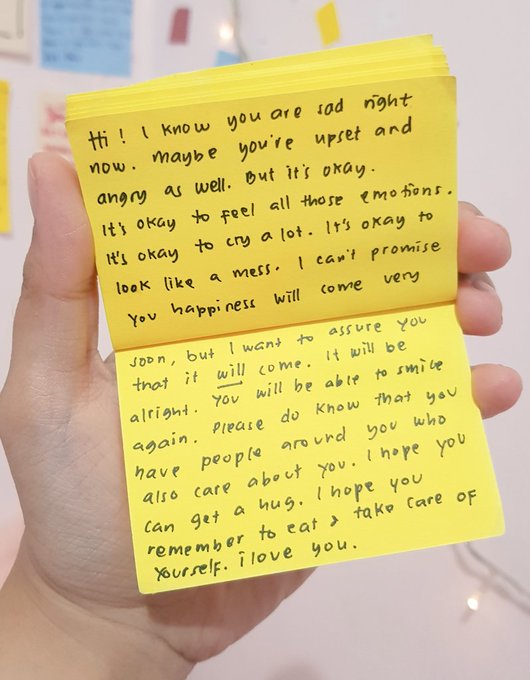 Hi! I know you are sad right
now. Maybe you're upset and
angry as well. But it's okay.
It's okay to feel all those emotions.
It's okay to cry a lot. It's okay to
look like a mess. I can't promise
you happiness will come very
soon, but I want to assure you
that it will come. It will be
alright. You will be able to smile
again. Please do know that you
have people around you who
also care about you. I hope you
can get a hug. I hope you
remember to eat & take care of
yourself. i love you.